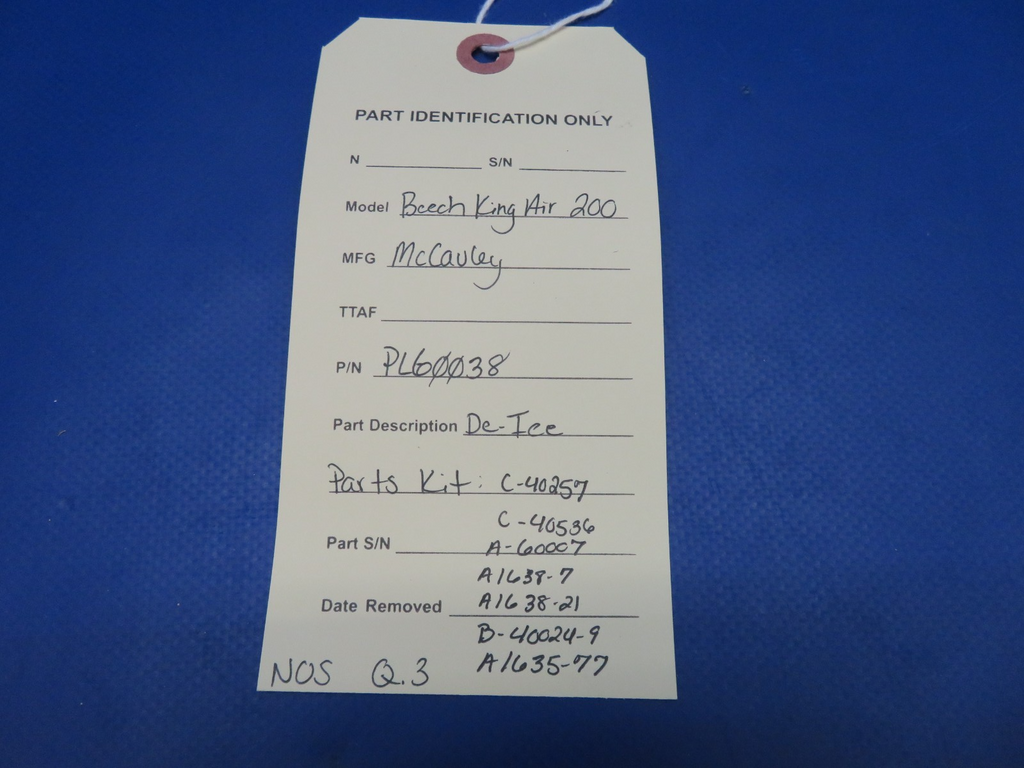 PART IDENTIFICATION ONLY
N S/N
Model Beech King Air 200
MFG McCauley
TTAF
P/N PL60038
Part Description De-Ice
Parts Kit: C-40257
C-40536
Part S/N A-60007
A1638-7
Date Removed A1638-21
B-40024-9
NOS Q.3 A1635-77